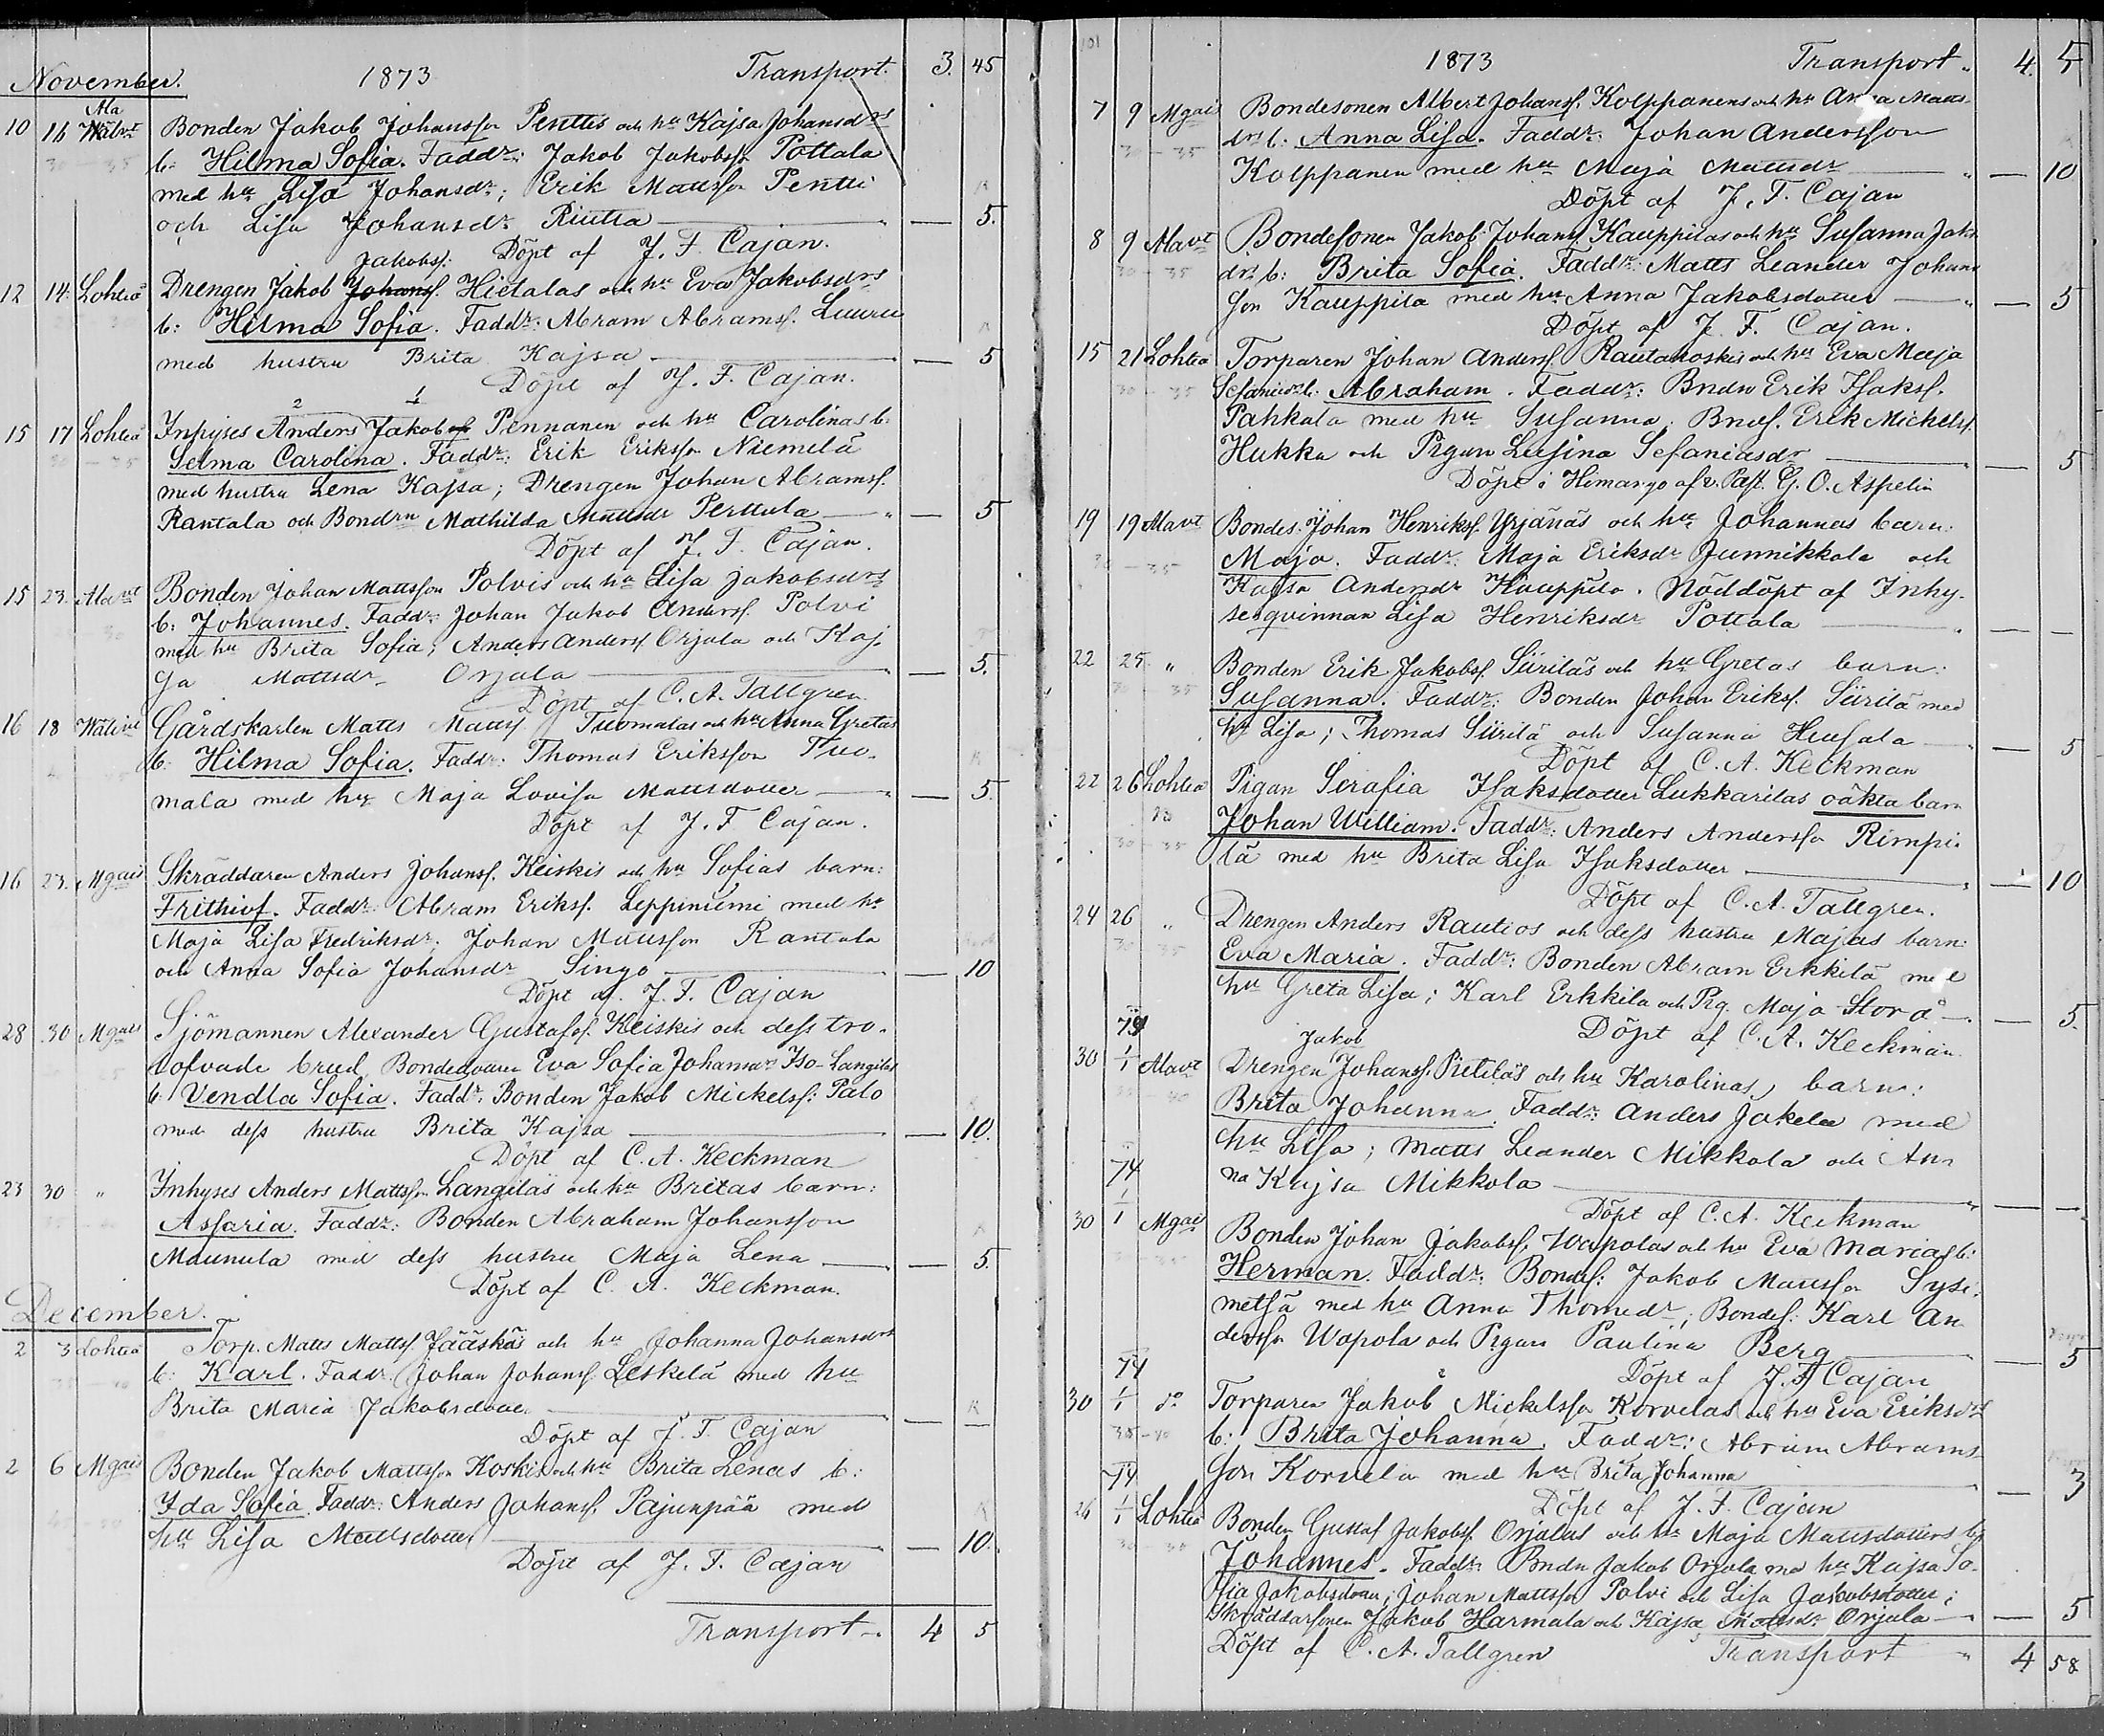 November. 1873 Transport. 3. 45
Ala
10 16 Wälivt Bonden Jakob Johansson Penttis och hu Kajsa Johansdrs
30 - 35 b: Hilma Sofia. Faddr: Jakob Jakobsson Pottala
med hu Lisa Johansdr; Erik Mattsson Pentti
och Lisa Johansdr Riutta — 5.
Döpt af J. F. Cajan.
Jakobs.
12 14. Lohteå Drengen Jakob Johanss. Hietalas och hu Eva Jakobsdrs
b: Hilma Sofia. Faddr: Abram Abramss. Lauru
med hustru Brita Kajsa — 5
Döpt af J. F. Cajan.
2 1
15 17 Lohteå Inhyses Anders Jakob Pennanen och hu Carolinas b:
30 - 35 Selma Carolina. Faddr: Erik Eriksson Niemelä
med hustru Lena Kajsa; Drengen Johan Abramss.
Rantala och Bondrn Mathilda Mattsdr Perttula — 5
Döpt af J. F. Cajan.
15 23. Alavt Bonden Johan Mattsson Polvis och hu Lisa Jakobsdrs
30 b: Johannes. Faddr: Johan Jakob Anderss. Polvi
med hu Brita Sofia; Anders Anderss. Orjala och Kaj-
sa Mattsdr Orjala — 5.
Döpt af C. A. Tallgren.
16 18 Wälivt Gårdskarlen Matts Mattss. Tuomalas och hu Anna Gretas
b: Hilma Sofia. Faddr: Thomas Eriksson Tuo-
mala med hu Maja Lovisa Mattsdotter — 5.
Döpt af J. F. Cajan.
16 23. Mgais Skräddaren Anders Johanss. Keiskis och hu Sofias barn:
Frithiof. Faddr: Abram Erikss. Leppiniemi med hu
Maja Lisa Fredriksdr; Johan Mattsson Rantala
och Anna Sofia Johansdr Singo — 10
Döpt af J. F. Cajan
28 30 Mgais Sjömannen Alexander Gustafss. Keiskis och dess tro-
lofvade brud, Bondedottren Eva Sofia Johansdrs Iso-Langilas
b: Vendla Sofia. Faddr: Bonden Jakob Mickelss: Palo
med dess hustru Brita Kajsa — 10.
Döpt af C. A. Keckman
23 30 " Inhyses Anders Mattsson Langiläs och hu Britas barn:
Assaria. Faddr: Bonden Abraham Johansson
Maunula med dess hustru Maja Lena — 5.
Döpt af C. A. Keckman.
December.
2 3 Lohteå Torp. Matts Mattss. Jääskäs och hu Johanna Johansdrs
35 - 40 b: Karl. Faddr: Johan Johanss. Leskelä med hu
Brita Maria Jakobsdotter —
Döpt af J. F. Cajan
2 6 Mgais Bonden Jakob Mattsson Koskis och hu Brita Lenas b:
45 - 50 Ida Sofia. Faddr: Anders Johanss. Pajunpää med
hu Lisa Mattsdotter — 10.
Döpt af J. F. Cajan
Transport. 4 5
101 1873 Transport. 4. 5
7 9 Mgais Bondesonen Albert Johanss. Kolppanens och hu Anna Matts-
30 - 35 drs b: Anna Lisa. Faddr: Johan Andersson
Kolppanen med hu Maja Mattsdr — 10
Döpt af J. F. Cajan
8 9 Alavt Bondesonen Jakob Johanss. Kauppilas och hu Susanna Jaks
30 - 35 drs b: Brita Sofia. Faddr: Matts Leander Johans
son Kauppila med hu Anna Jakobsdotter — 5
Döpt af J. F. Cajan.
15 21 Lohteå Torparen Johan Anderss. Rautakoskis och hu Eva Maja
30 - 35 Sefaniedr b: Abraham. Faddr: Bndn Erik Isakss.
Pahkala med hu Susanna; Bnds. Erik Mickelss.
Hukka och Pigan Lusina Sefaniasdr — 5
Döpt i Himango af v. Past. G. O. Aspelin
19 19 Alavt Bondes. Johan Henrikss. Yrjänäs och hu Johannas barn:
30 - 35 Maja. Faddr: Maja Eriksdr Junnikkala och
Kajsa Andersdr Kauppila. Nöddöpt af Inhy-
sesqvinnan Lisa Henriksdr Pottala —
22 25 " Bonden Erik Jakobss. Siiriläs och hu Gretas barn:
30 - 35 Susanna. Faddr: Bonden Johan Erikss. Siirilä med
hu Lisa; Thomas Siirilä och Susanna Heusala — 5
Döpt af C. A. Keckman
22 26 Lohteå Pigan Serafia Isaksdotter Lukkarilas oäkta barn
Johan William. Faddr: Anders Andersson Rimpi-
30 - 35 lä med hu Brita Lisa Isaksdotter — 10
Döpt af C. A. Tallgren.
24 26 " Drengen Anders Rautios och dess hustru Majas barn:
30 - 35 Eva Maria. Faddr: Bonden Abram Erkkilä med
hu Greta Lisa; Karl Erkkilä och Pig. Maja Storå — 5.
74 Döpt af C. A. Keckman.
Jakob
30 1/1 Alavt Drengen Johanss. Pietiläs och hu Karolinas barn:
Brita Johanna. Faddr: Anders Jokela med
hu Lisa; Matts Leander Mikkola och An-
74 na Kajsa Mikkola —
Döpt af C. A. Keckman
30 1/1 Mgais Bonden Johan Jakobss. Wapolas och hu Eva Marias b:
Herman. Faddr: Bonds: Jakob Mattsson Sysi-
metsä med hu Anna Thomedr; Bondes: Karl An-
dersson Wapola och Pigan Paulina Berg — 5
74 Döpt af J. F. Cajan
30 1/1 do Torparen Jakob Mickelsson Korvelas och hu Eva Eriksdrs
35 - 40 b: Brita Johanna. Faddr: Abram Abrams-
74 son Korvela med hu Brita Johanna — 3
Döpt af J. F. Cajan
26 1/1 Lohteå Bonden Gustaf Jakobss. Orjalas och hu Maja Mattsdotters b:
Johannes. Faddr: Bndn Jakob Orjala med hu Kajsa So-
fia Jakobsdotter; Johan Mattsson Polvi och Lisa Jakobsdotter;
Skräddarsonen Jakob Harmala och Kajsa Mattsdr Orjala — 5
Döpt af C. A. Tallgren Transport 4 58